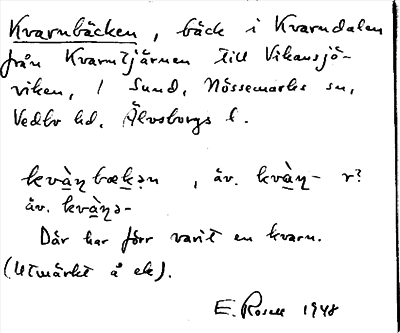 Kvarnbäcken, bäck i Kvarndalen
från Kvarntjärnen till Vikensjö-
viken, 1 Sund, Nössemarks sn,
Vedbo hd, Älvsborgs l.
kvàn̥bæk̲ən, äv. kvàn̥- r?
äv. kvàn̥ə-
Där har förr varit en kvarn.
(Utmärkt å ek).
E. Rosell 1948